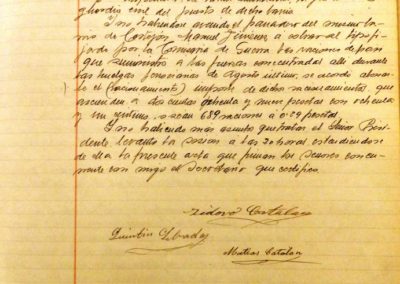 guardia civil del puesto de dicha barria
Y no habiendo acudido el panadero del mismo ta-
mo de Cortejón, Manuel Jiménez a cobrar del tipo fi-
jado por la Comisaria de Guerra las raciones de pan
que suministró a las fuerzas concentradas allí durante
las huelgas ferroviarias de Agosto último, se acordó abonar-
le el (racionamiento) importe de dicho racionamiento, que
asciende a doscientas ochenta y nueve pesetas con ochenta
y un céntimos, o sean 689 raciones a pesetas
Y no habiendo mas asuntos que tratar el Señor Presi-
dente levantó la sesión a las 20 horas extendiendose
de ella la presente acta que firman los señores concu-
rrente con migo el Secretario que certifico.
Isidoro Catalan
Quintin
Matias Catalan